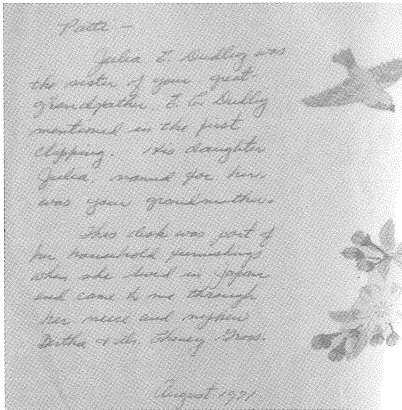 Patti —
Julia E. Dudley was
the sister of your great
grandfather, E. C. Dudley
mentioned in the first
clipping. His daughter
Julia, named for her,
was your grandmother.
This desk was part of
her household furnishings
when she lived in Japan
and came to me through
her niece and nephew
Bertha & Dr. Cheney
August 1971